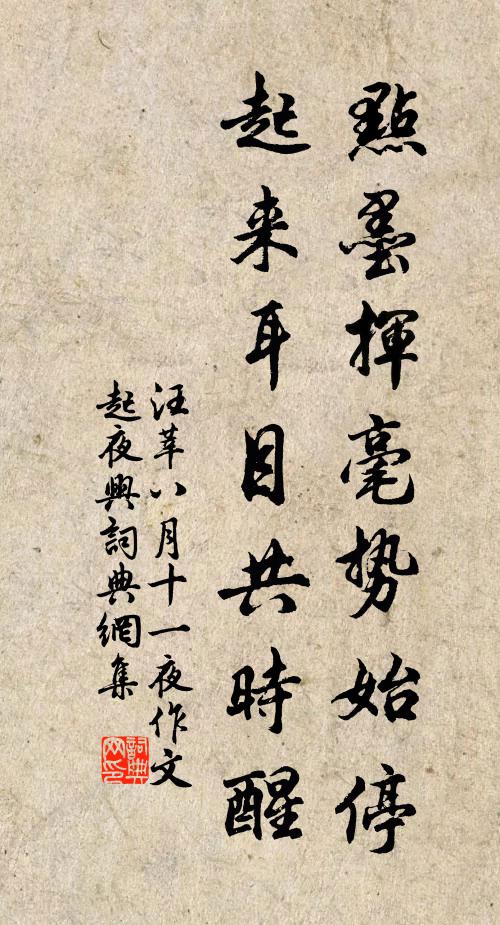 點墨揮毫勢始停
起来耳目共時醒
汪莘八月十一夜作文
起夜興詞典網集
詞典
网印